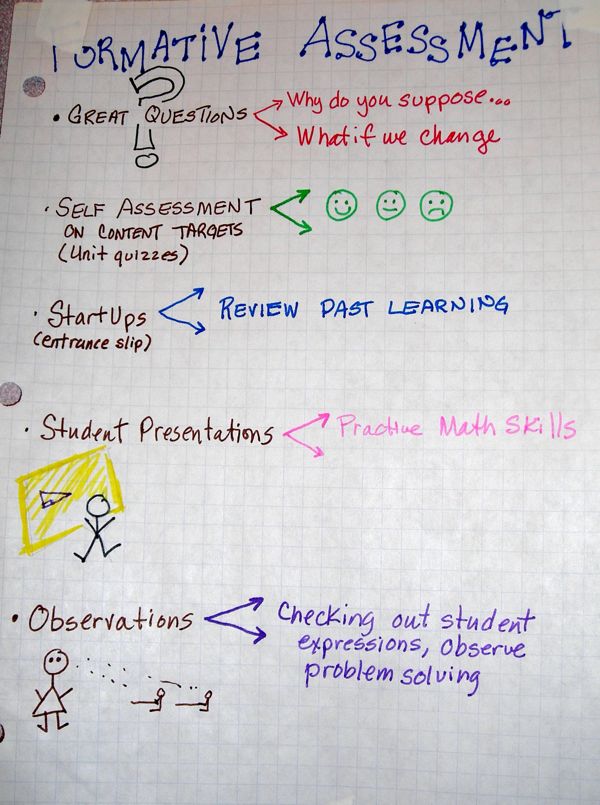 FORMATIVE ASSESSMENT
• GREAT QUESTIONS
Why do you suppose...
What if we change
• SELF ASSESSMENT
ON CONTENT TARGETS
(Unit quizzes)
• StartUps
(entrance slip)
REVIEW PAST LEARNING
• Student Presentations
Practive Math Skills
• Observations
Checking out student
expressions, Observe
problem solving